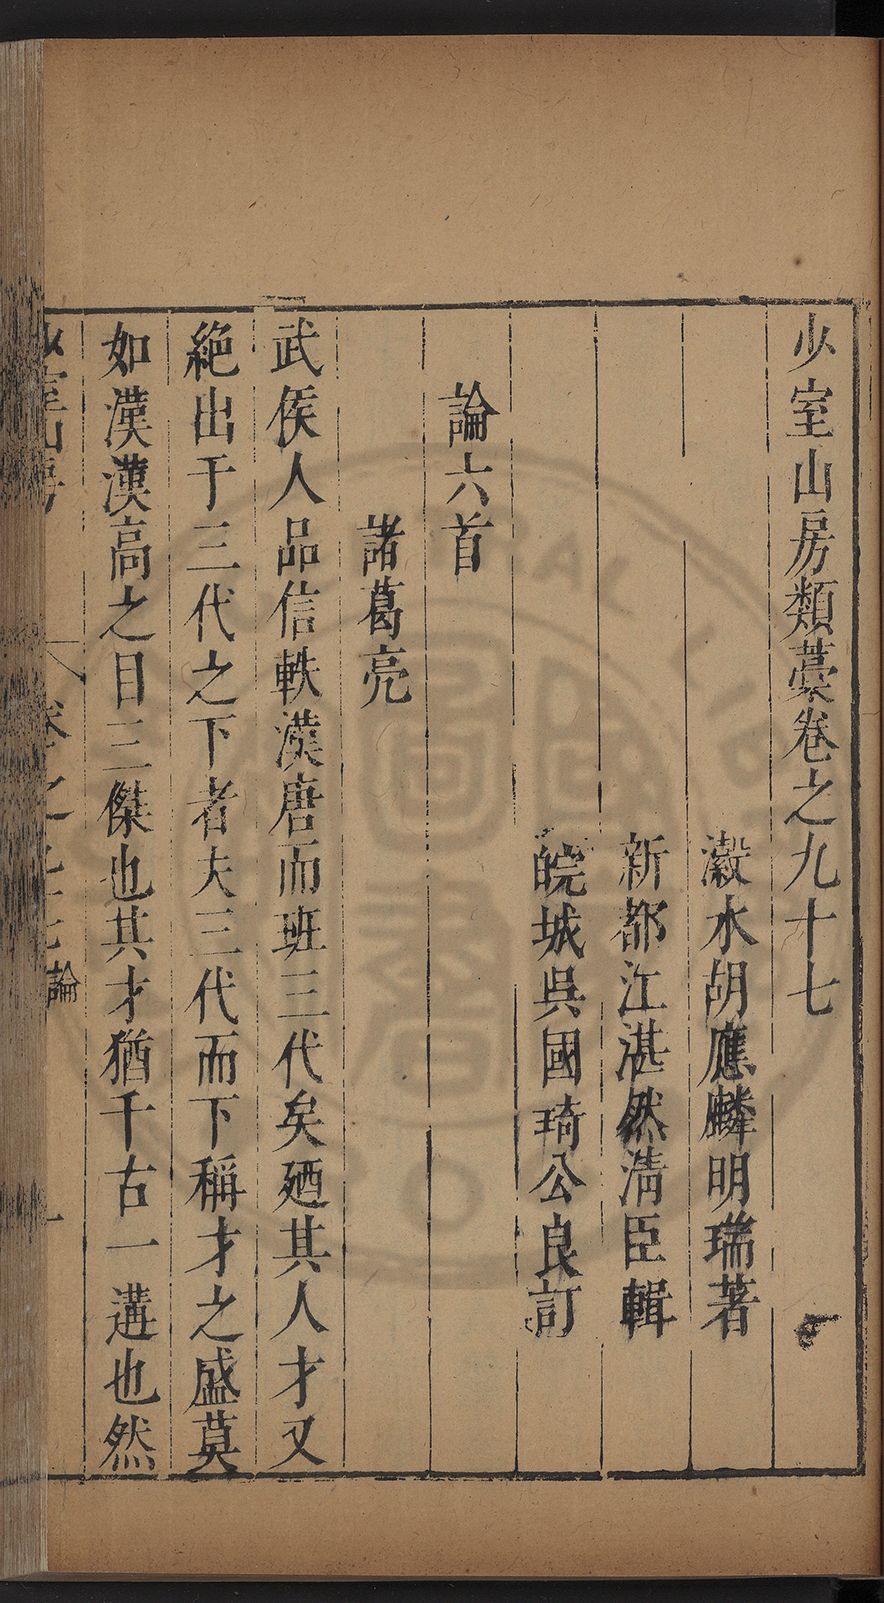 少室山房類藁卷之九十七
瀫水胡應麟明瑞著
新都江湛然清臣輯
皖城吳國琦公良訂
論六首
諸葛亮
武侯人品信軼漢唐而班三代矣廼其人才又
絶出于三代之下者夫三代而下稱才之盛莫
如漢漢高之目三傑也其才猶千古一遘也然
少室山房 卷之九十七 論 一